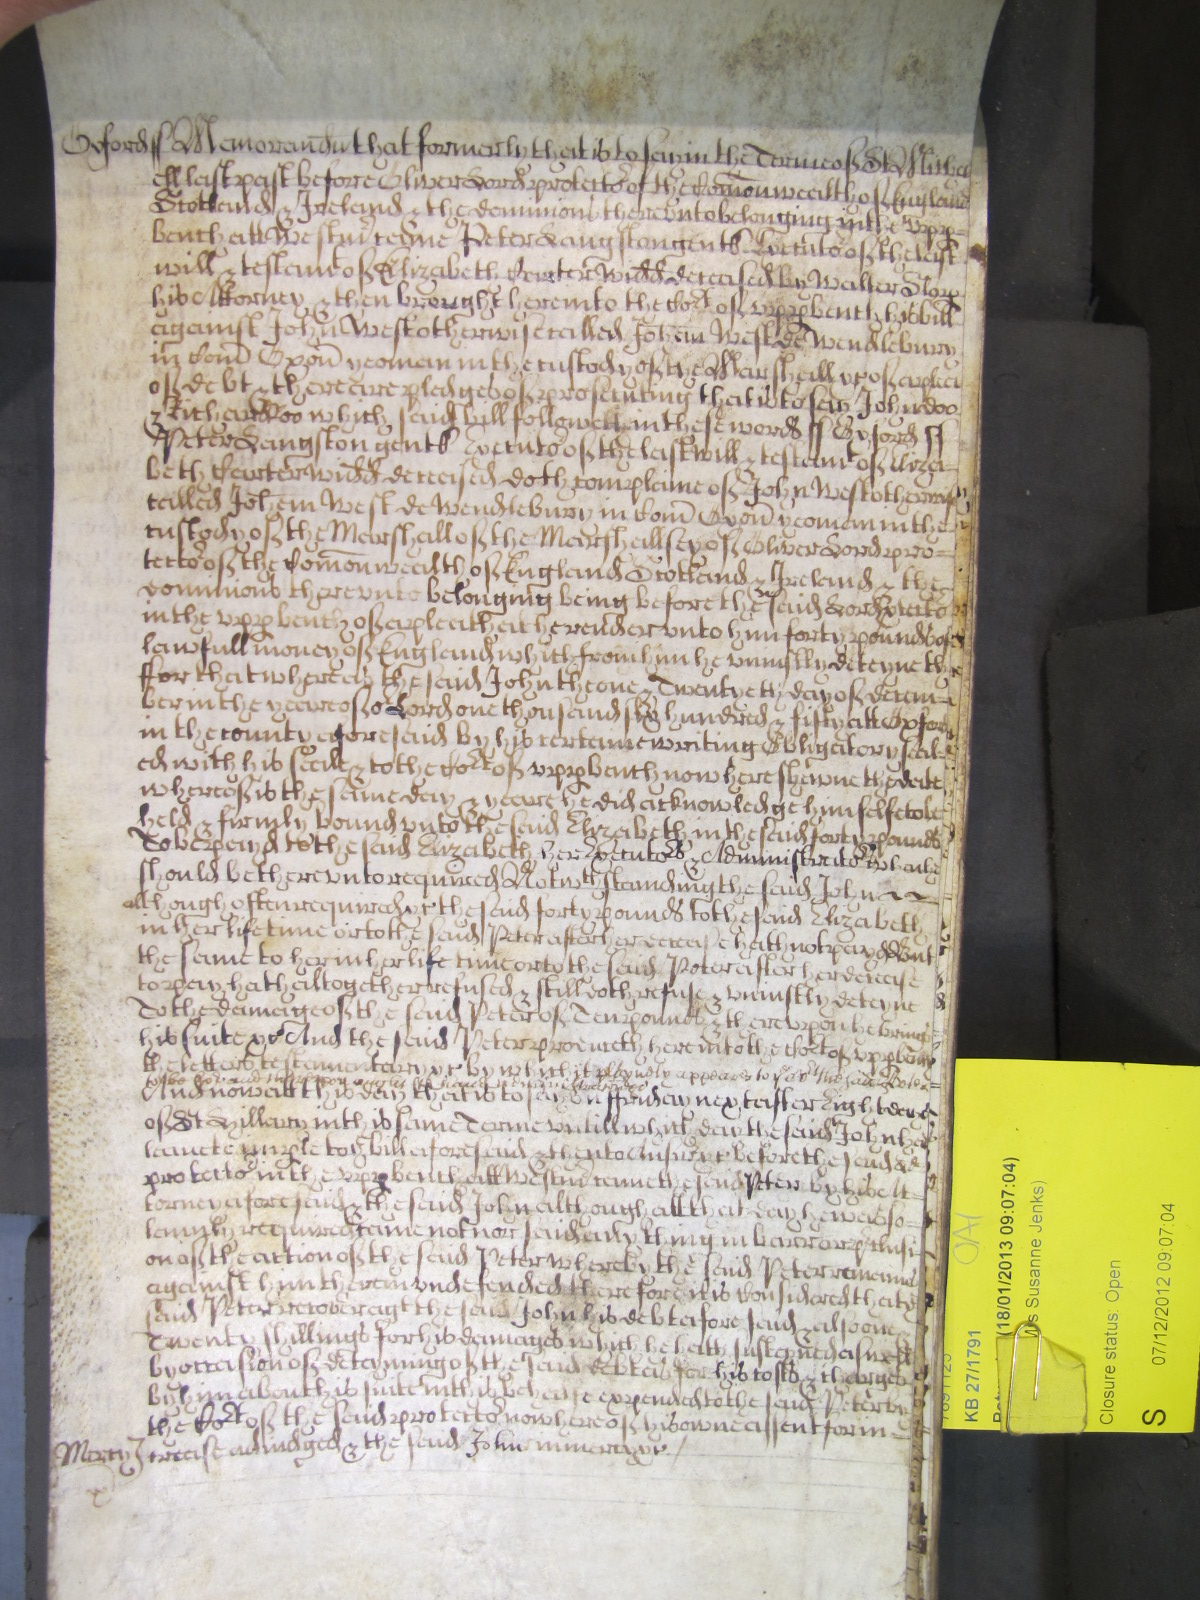 Oxford ss Memorandū that formerly that is to say in the Terme of St Micha
ell last past before Oliver Lord protector of the Cōmonwealth of England
Scotland & Ireland & the dominions therevnto belonging in the vpp
bench att Westmr came Peter Langston gent Executor of the last
will & testamt of Elizabeth Carter widd deceased by Walter
his Attorney & then brought here into the Cort of vpp bench his bill
against John West otherwise called Johem West de Wendlebury
in Com Oxon yeoman in the custody of the Marshall &c of a plea
of debt & there are pledges of prosecuting that is to say John doo
& Richard Roo which said bill followeth in these words ss Oxford ss
Peter Langston gent Executor of the last will & testamt of Eliza
beth Carter widd deceased doth complaine of John West otherwise
called Johem West de Wendlebury in Com Oxon yeoman in the
custody of the Marshall of the Marshallsey of Oliver Lord pro
tector of the Cōmonwealth of England Scotland & Ireland & the
dominions therevnto belonging being before the said Lord protector
in the vpp bench of a plea that he render vnto him forty pounds of
lawfull money of England which from him he vniustly deteyneth
ffor that whereas the said John the one & Twentyeth day of decem
ber in the yeare of or Lord one thousand six hundred & fifty att Oxford
in the county aforesaid by his certaine writing Obligatory seal
ed with his seale & to the Cort of vpp bench now here shewne the date
whereof is the same day & yeare he did acknowledge himselfe to be
held & firmly bound vnto the said Elizabeth in the said forty pounds
To be payd to the said Elizabeth her Executors & Administrators when he
should be therevnto required Notwthstanding the said John
although often required &c the said forty pounds to the said Elizabeth
in her life time or to the said Peter after her decease hath not payd But
the same to her in her life time or to the said Peter after her decease
to pay hath altogether refused & still doth refuse & vniustly deteyne
To the damage of the said Peter of Ten pounds & therevpon he brings
his suite &c And the said Peter proueth here into the Cort of vpp bench
the letters testamentary &c by which it playnely appeares to the said Peter
And now att this day that is to say on ffriday next after Eight dayes
of St Hillary in this same Terme vntill which day the said John had
leaue to imple to ye bill aforesaid & then to Answer &c before the said Ld
protector in the vpp bench att Westmr came the said Peter by his At
torney aforesaid & the said John although att that day he was so
lemnly required came not nor said any thing in barre or preclusi
on of the action of the said Peter whereby the said Peter remaines
against him therein vndefended therefore it is Considered that ye
said Peter recover agt the said John his debt aforesaid & also one &
Twenty shillings for his damages which he hath susteyned aswell
by occasion of deteyning of the said debt as for his costs & charges
by him about his suite in this behalfe expended to the said Peter by
the Cort of the said protector now here of his owne assent form
Mercy J crease adiudged & the said John in mercy &c
(18/01/2013 09:07:04)
Susanne Jenks)
KB 27/1791
Closure status: Open
S
07/12/2012 09:07:04